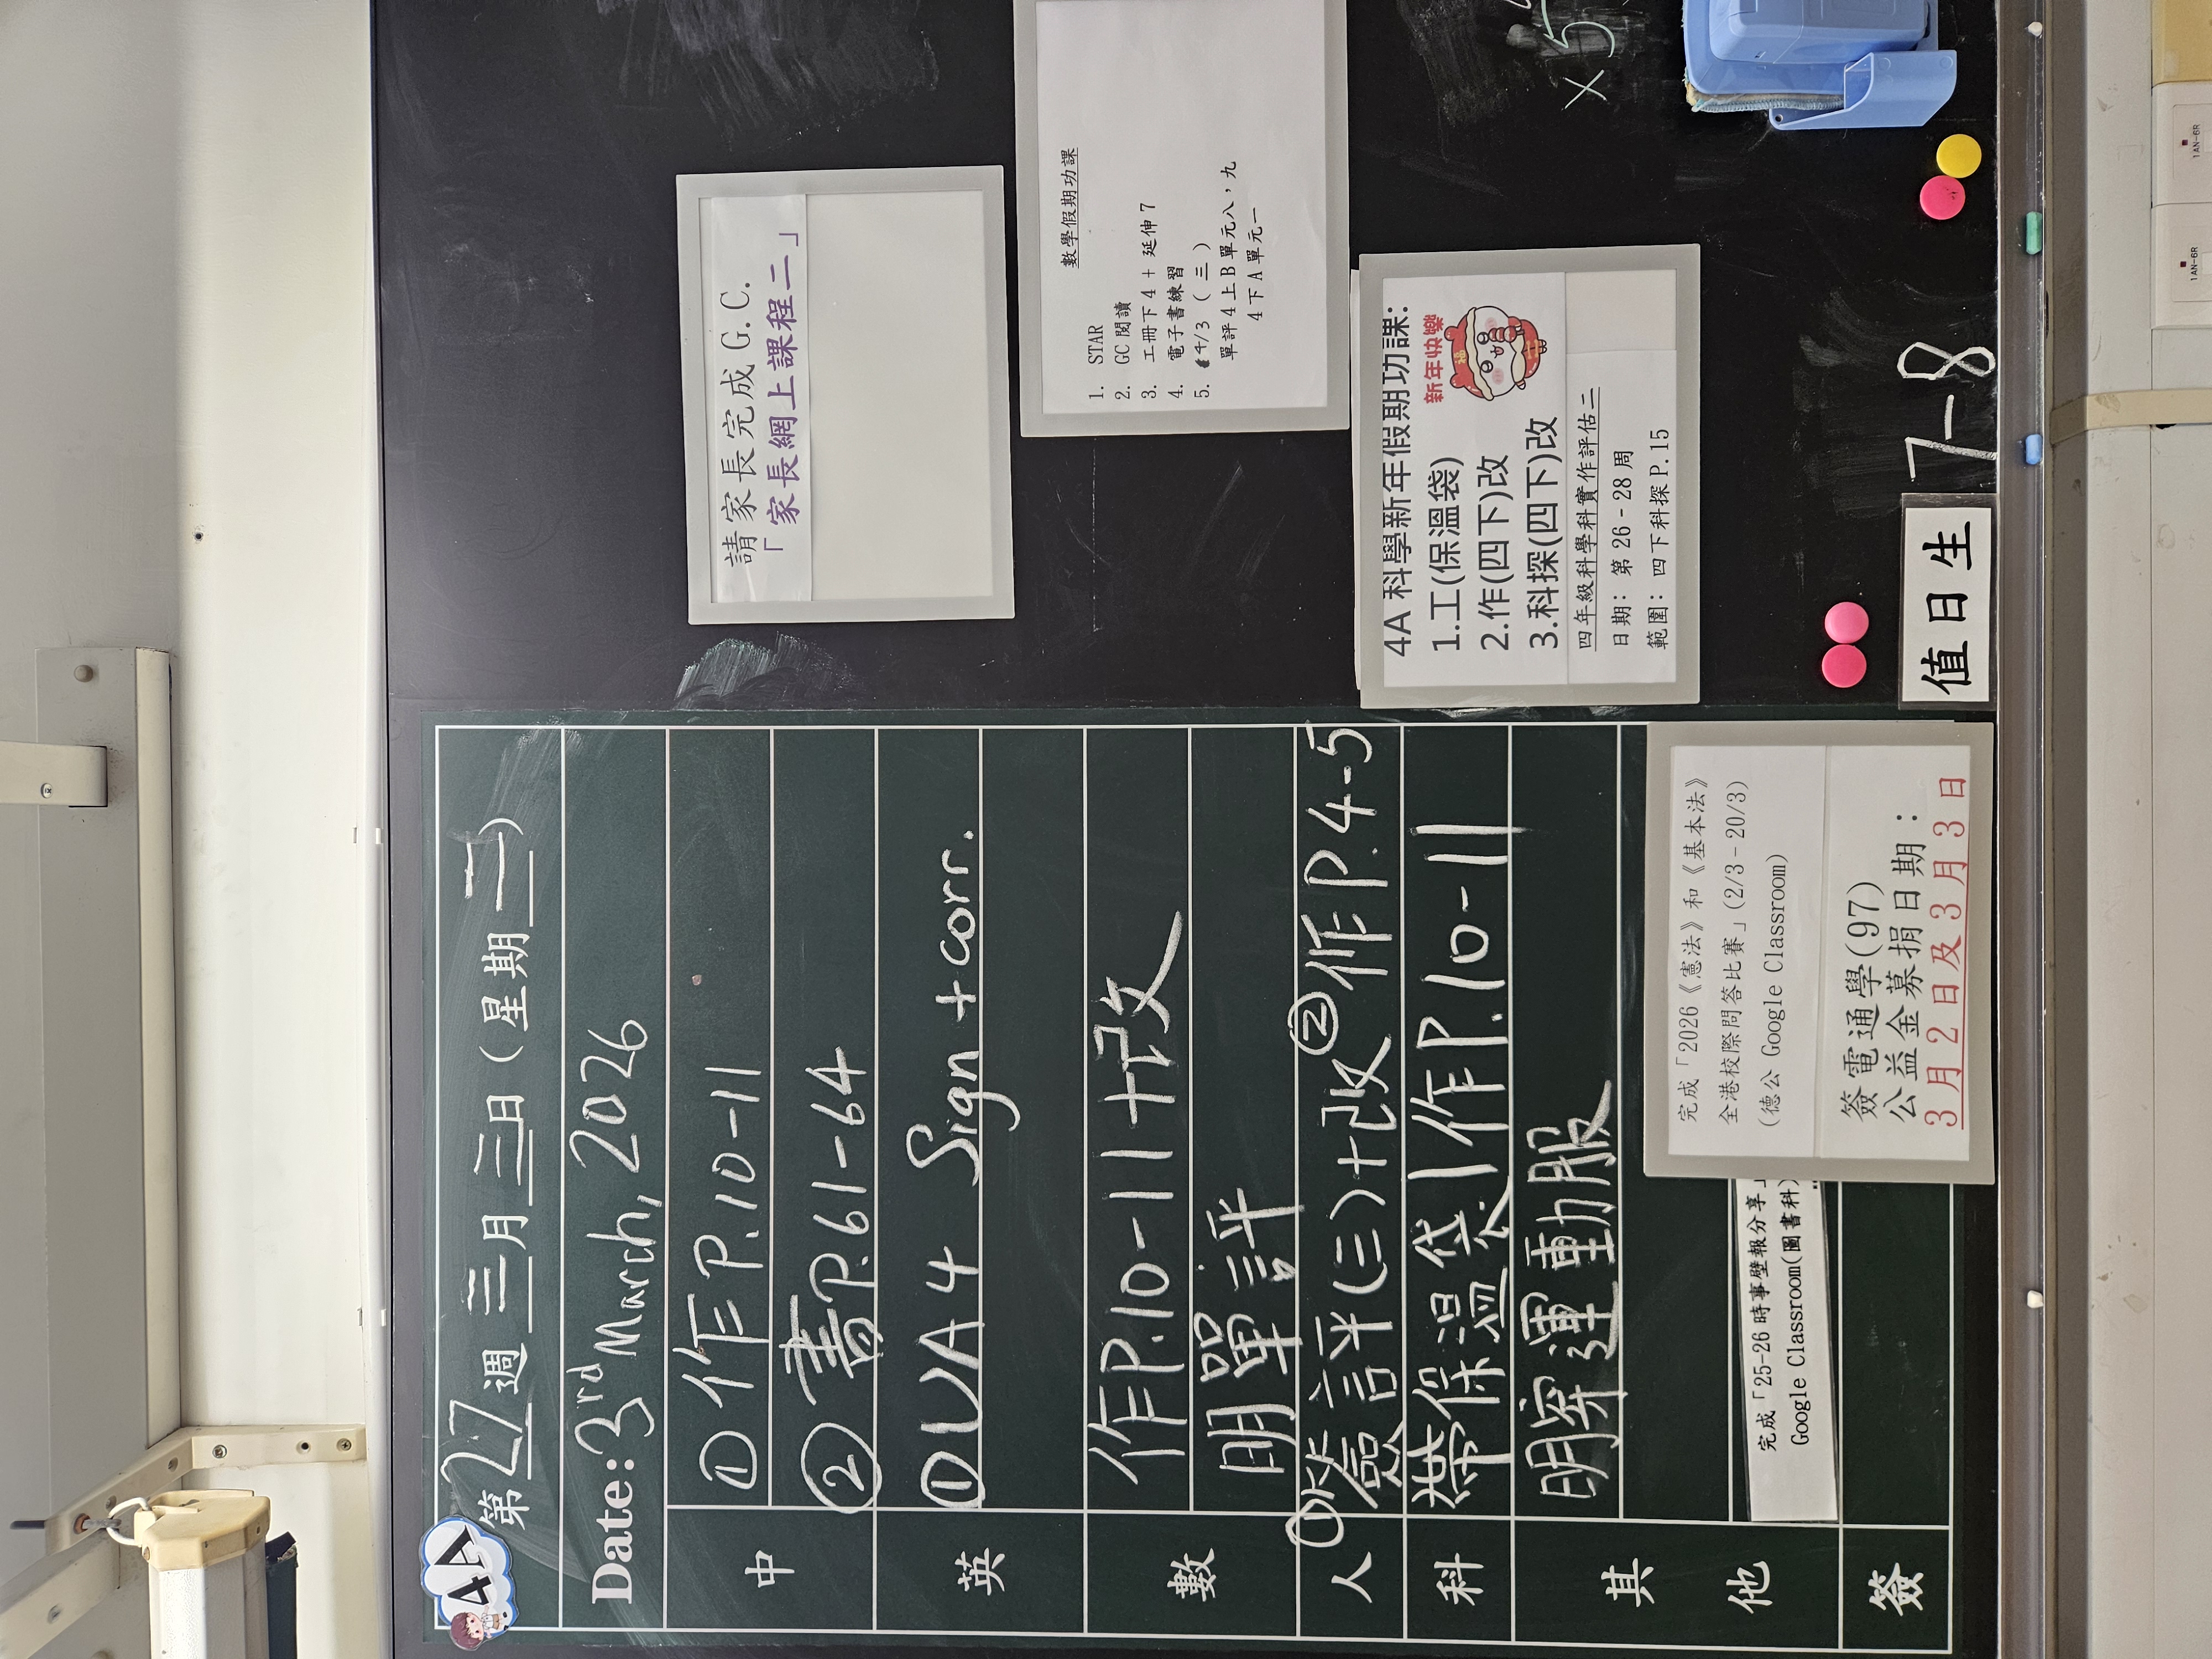 4A
第27週 三月三日(星期二)
Date: 3rd March, 2026
中
①作P.10-11
②書P.61-64
英
①UA4 Sign + corr.
數
作P.10-11+改
明單評
人
①簽評(三)+改 ②作P.4-5
科
帶保溫袋 作P.10-11
其他
明穿運動服
完成「25-26 時事壁報分享」
Google Classroom(圖書科)
簽
完成「2026《憲法》和《基本法》
全港校際問答比賽」(2/3-20/3)
(德公 Google Classroom)
簽電通學(97)
公益金募捐日期：
3月2日及3月3日
請家長完成G.C.
「家長網上課程二」
數學假期功課
1. STAR
2. GC閱讀
3. 工冊下4 + 延伸7
4. 電子書練習
5. 4/3 (三)
單評4上B單元八，九
4下A單元一
4A 科學新年假期功課:
1.工(保溫袋)
2.作(四下)改
3.科探(四下)改
新年快樂
福
四年級科學科實作評估二
日期: 第26-28周
範圍: 四下科探P.15
值日生
7-8
1AN-6R
1AN-6R